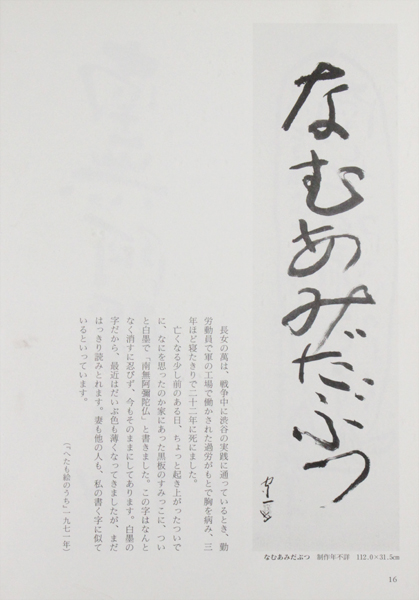 なむあみだぶつ
守一
なむあみだぶつ　制作年不詳　112.0×31.5cm
長女の萬は、戦争中に渋谷の実践に通っているとき、勤
労動員で軍の工場で働かされた過労がもとで胸を病み、三
年ほど寝たきりで二十二年に死にました。
亡くなる少し前のある日、ちょっと起き上がったついで
に、なにを思ったのか家にあった黒板のすみっこに、つい
と白墨で「南無阿彌陀仏」と書きました。この字はなんと
なく消すに忍びず、今もそのままにしてあります。白墨の
字だから、最近はだいぶ色も薄くなってきましたが、まだ
はっきり読みとれます。妻も他の人も、私の書く字に似て
いるといっています。
（「へたも絵のうち」一九七一年）
16